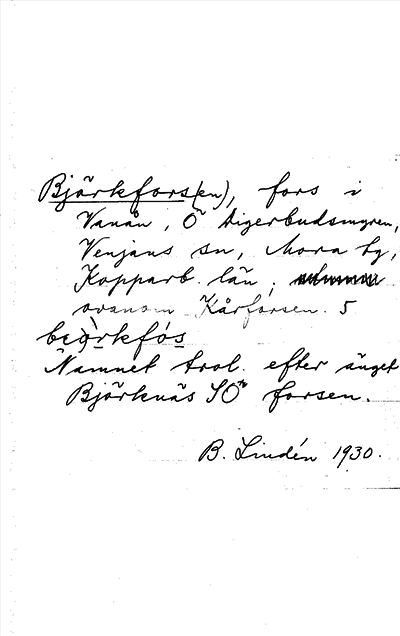 Björkfors(en), fors i
Vanån, Ö Digerbudsmyren,
Venjans sn, Mora tg,
Kopparb. län,
ovanom Kårforsen. 5
Namnet trol. efter änget
Björknäs SÖ forsen.
B. Lindén 1930.